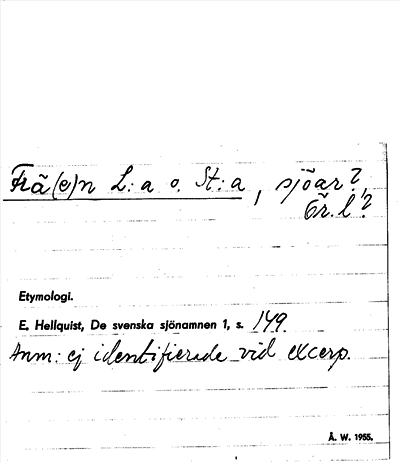 Frä(e)n L:a o. St:a, sjöar?
Ör. l.?
Etymologi.
E. Hellquist, De svenska sjönamnen 1, s. 149.
Anm: ej identifierade vid excerp.
Å. W. 1955.